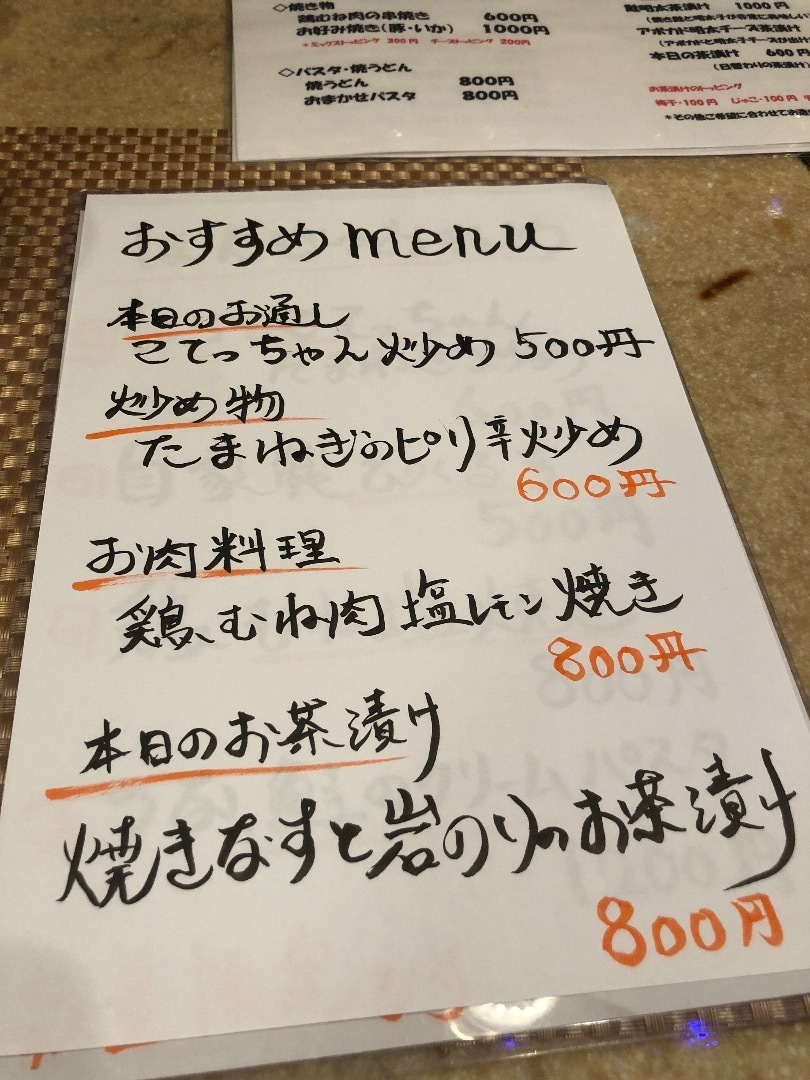 ◇焼き物
鶏むね肉の串焼き 600円
お好み焼き(豚・いか) 1000円
*ミックストッピング 300円 チーズトッピング 200円
◇パスタ・焼うどん
焼うどん 800円
おまかせパスタ 800円
明太茶漬け 1000円
アボカド明太チーズ茶漬け
(アボカドと明太子チーズが出汁
本日の茶漬け 600円
(日替わりの茶漬け)
お茶漬けのトッピング
梅干・100円 じゃこ・100円
*その他ご希望に合わせてお造
おすすめmenu
本日のお通し
こてっちゃん炒め 500円
炒め物
たまねぎのピリ辛炒め
600円
お肉料理
鶏むね肉 塩レモン焼き
800円
本日のお茶漬け
焼きなすと岩のりのお茶漬け
800円